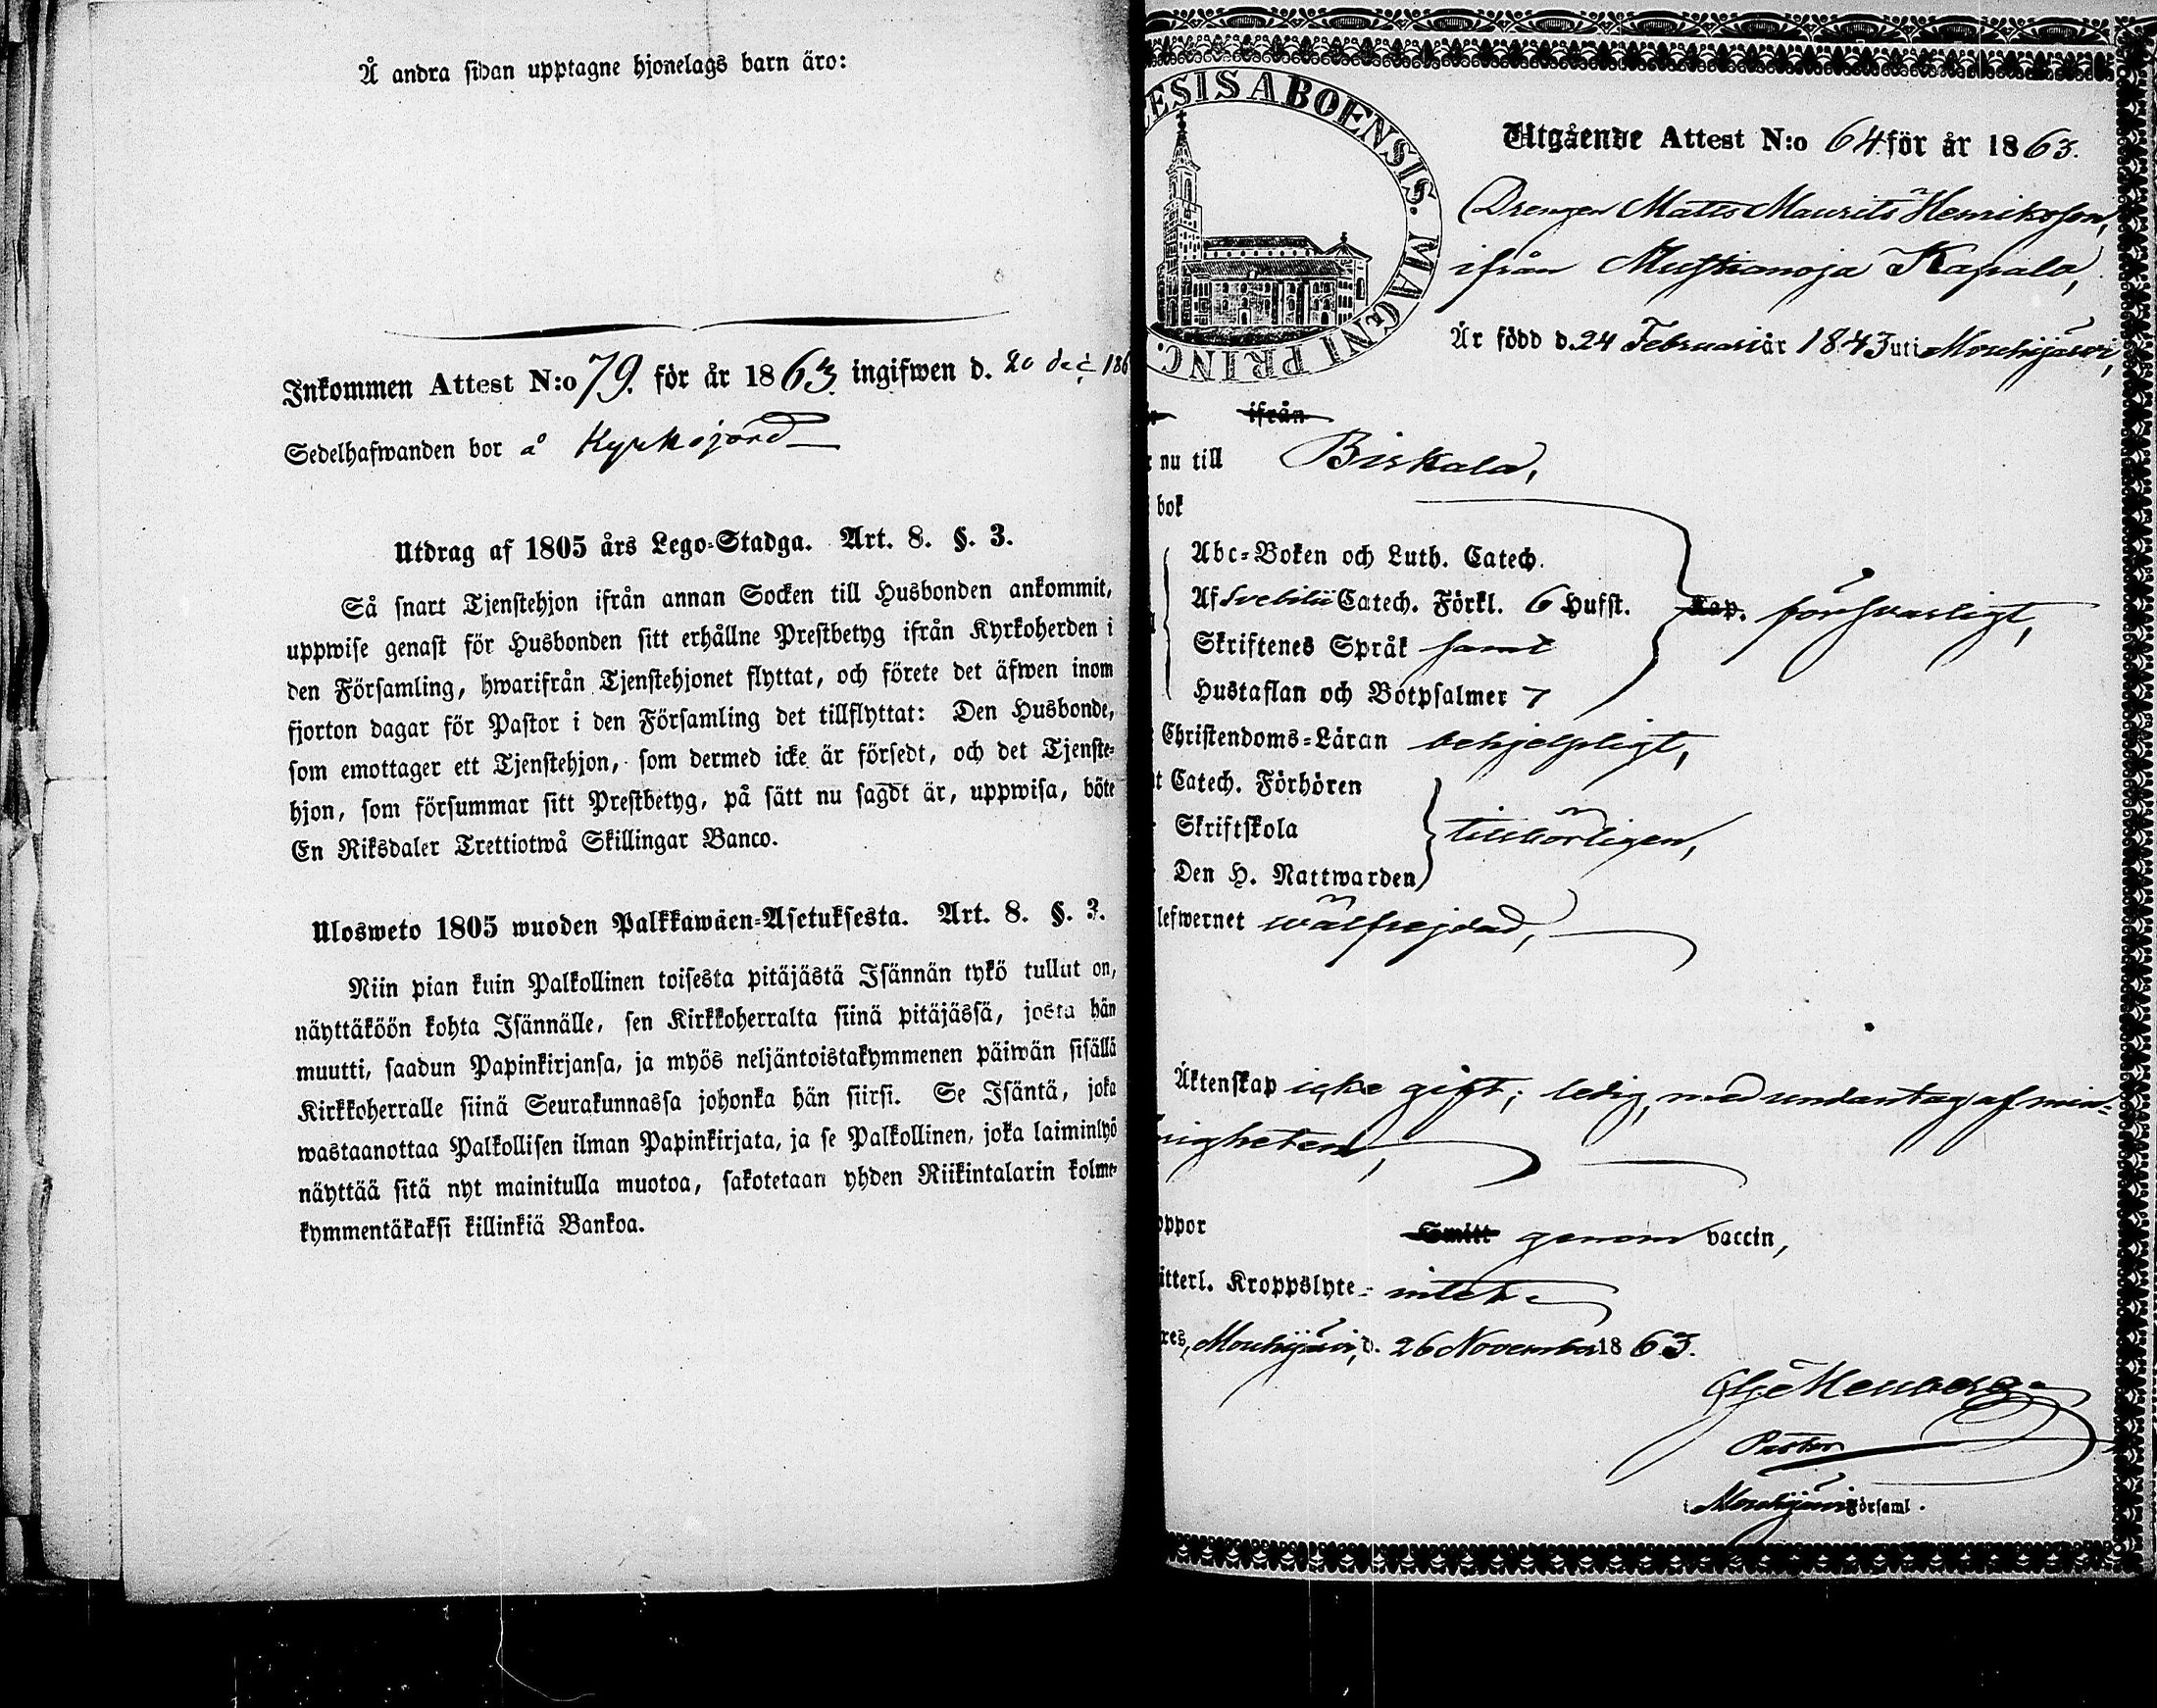 Å andra sidan upptagne hjonelags barn äro:
Inkommen Attest N:o 79. för år 1863 ingifwen d. 20 dec 186
Sedelhafwanden bor å Kyrkojord
Utdrag af 1805 års Lego-Stadga. Art. 8. §. 3.
Så snart Tjenstehjon ifrån annan Socken till Husbonden ankommit,
uppwise genast för Husbonden sitt erhållne Prestbetyg ifrån Kyrkoherden i
den Församling, hwarifrån Tjenstehjonet flyttat, och förete det äfwen inom
fjorton dagar för Pastor i den Församling det tillflyttat: Den Husbonde,
som emottager ett Tjenstehjon, som dermed icke är försedt, och det Tjenste-
hjon, som försummar sitt Prestbetyg, på sätt nu sagdt är, uppwisa, böte
En Riksdaler Trettiotwå Skillingar Banco.
Ulosweto 1805 wuoden Palkkawäen-Asetuksesta. Art. 8. §. 3.
Niin pian kuin Palkollinen toisesta pitäjästä Isännän tykö tullut on,
näyttäköön kohta Isännälle, sen Kirkkoherralta siinä pitäjässä, josta hän
muutti, saadun Papinkirjansa, ja myös neljäntoistakymmenen päiwän sisällä
Kirkkoherralle siinä Seurakunnassa johonka hän siirsi. Se Isäntä, joka
wastaanottaa Palkollisen ilman Papinkirjata, ja se Palkollinen, joka laiminlyö
näyttää sitä nyt mainitulla muotoa, sakotetaan yhden Riikintalarin kolme-
kymmentäkaksi killinkiä Bankoa.
ESIS ABOENSIS. MAGNI PRINC.
Utgående Attest N:o 64 för år 1863.
Drengen Matts Maurits Henriksson,
ifrån Mustianoja Kapala,
Är född d. 24 Februari år 1843 uti Mouhijärvi,
ifrån
nu till Birkala,
bok
Abc-Boken och Luth. Catech.
Af Svebilii Catech. Förkl. 6 Hufst. Kap. försvarligt,
Skriftenes Språk samt
Hustaflan och Botpsalmer 7
Christendoms-Läran behjelpligt,
t Catech. Förhören
Skriftskola tillbörligen,
Den H. Nattwarden
lefwernet wälfrejdad,
Äktenskap icke gift; ledig, med undantag af min-
righeten,
oppor Smitt genom vaccin,
itterl. Kroppslyte- intet
res, Mouhijärvi, d. 26 November 1863.
Pastor
i Mouhijärvi Församl.